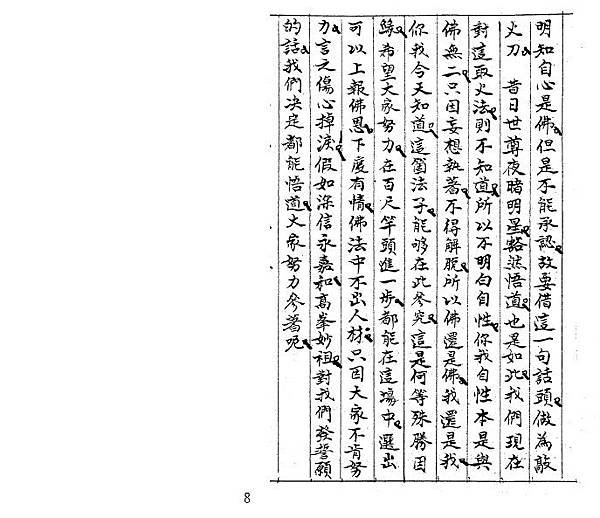 明知自心是佛但是不能承認故要借這一句話頭做為敲
火刀　昔日世尊夜睹明星豁然悟道也是如此我們現在
對這取火法則不知道所以不明白自性你我自性本是與
佛無二只因妄想執著不得解脫所以佛還是佛我還是我
你我今天知道這箇法子能够在此參究這是何等殊勝因
緣希望大家努力在百尺竿頭進一步都能在這場中選出
可以上報佛恩下度有情佛法中不出人材只因大家不肯努
力言之傷心掉淚假如深信永嘉和高峯妙祖對我們發誓願
的話我們決定都能悟道大家努力參著吧
8